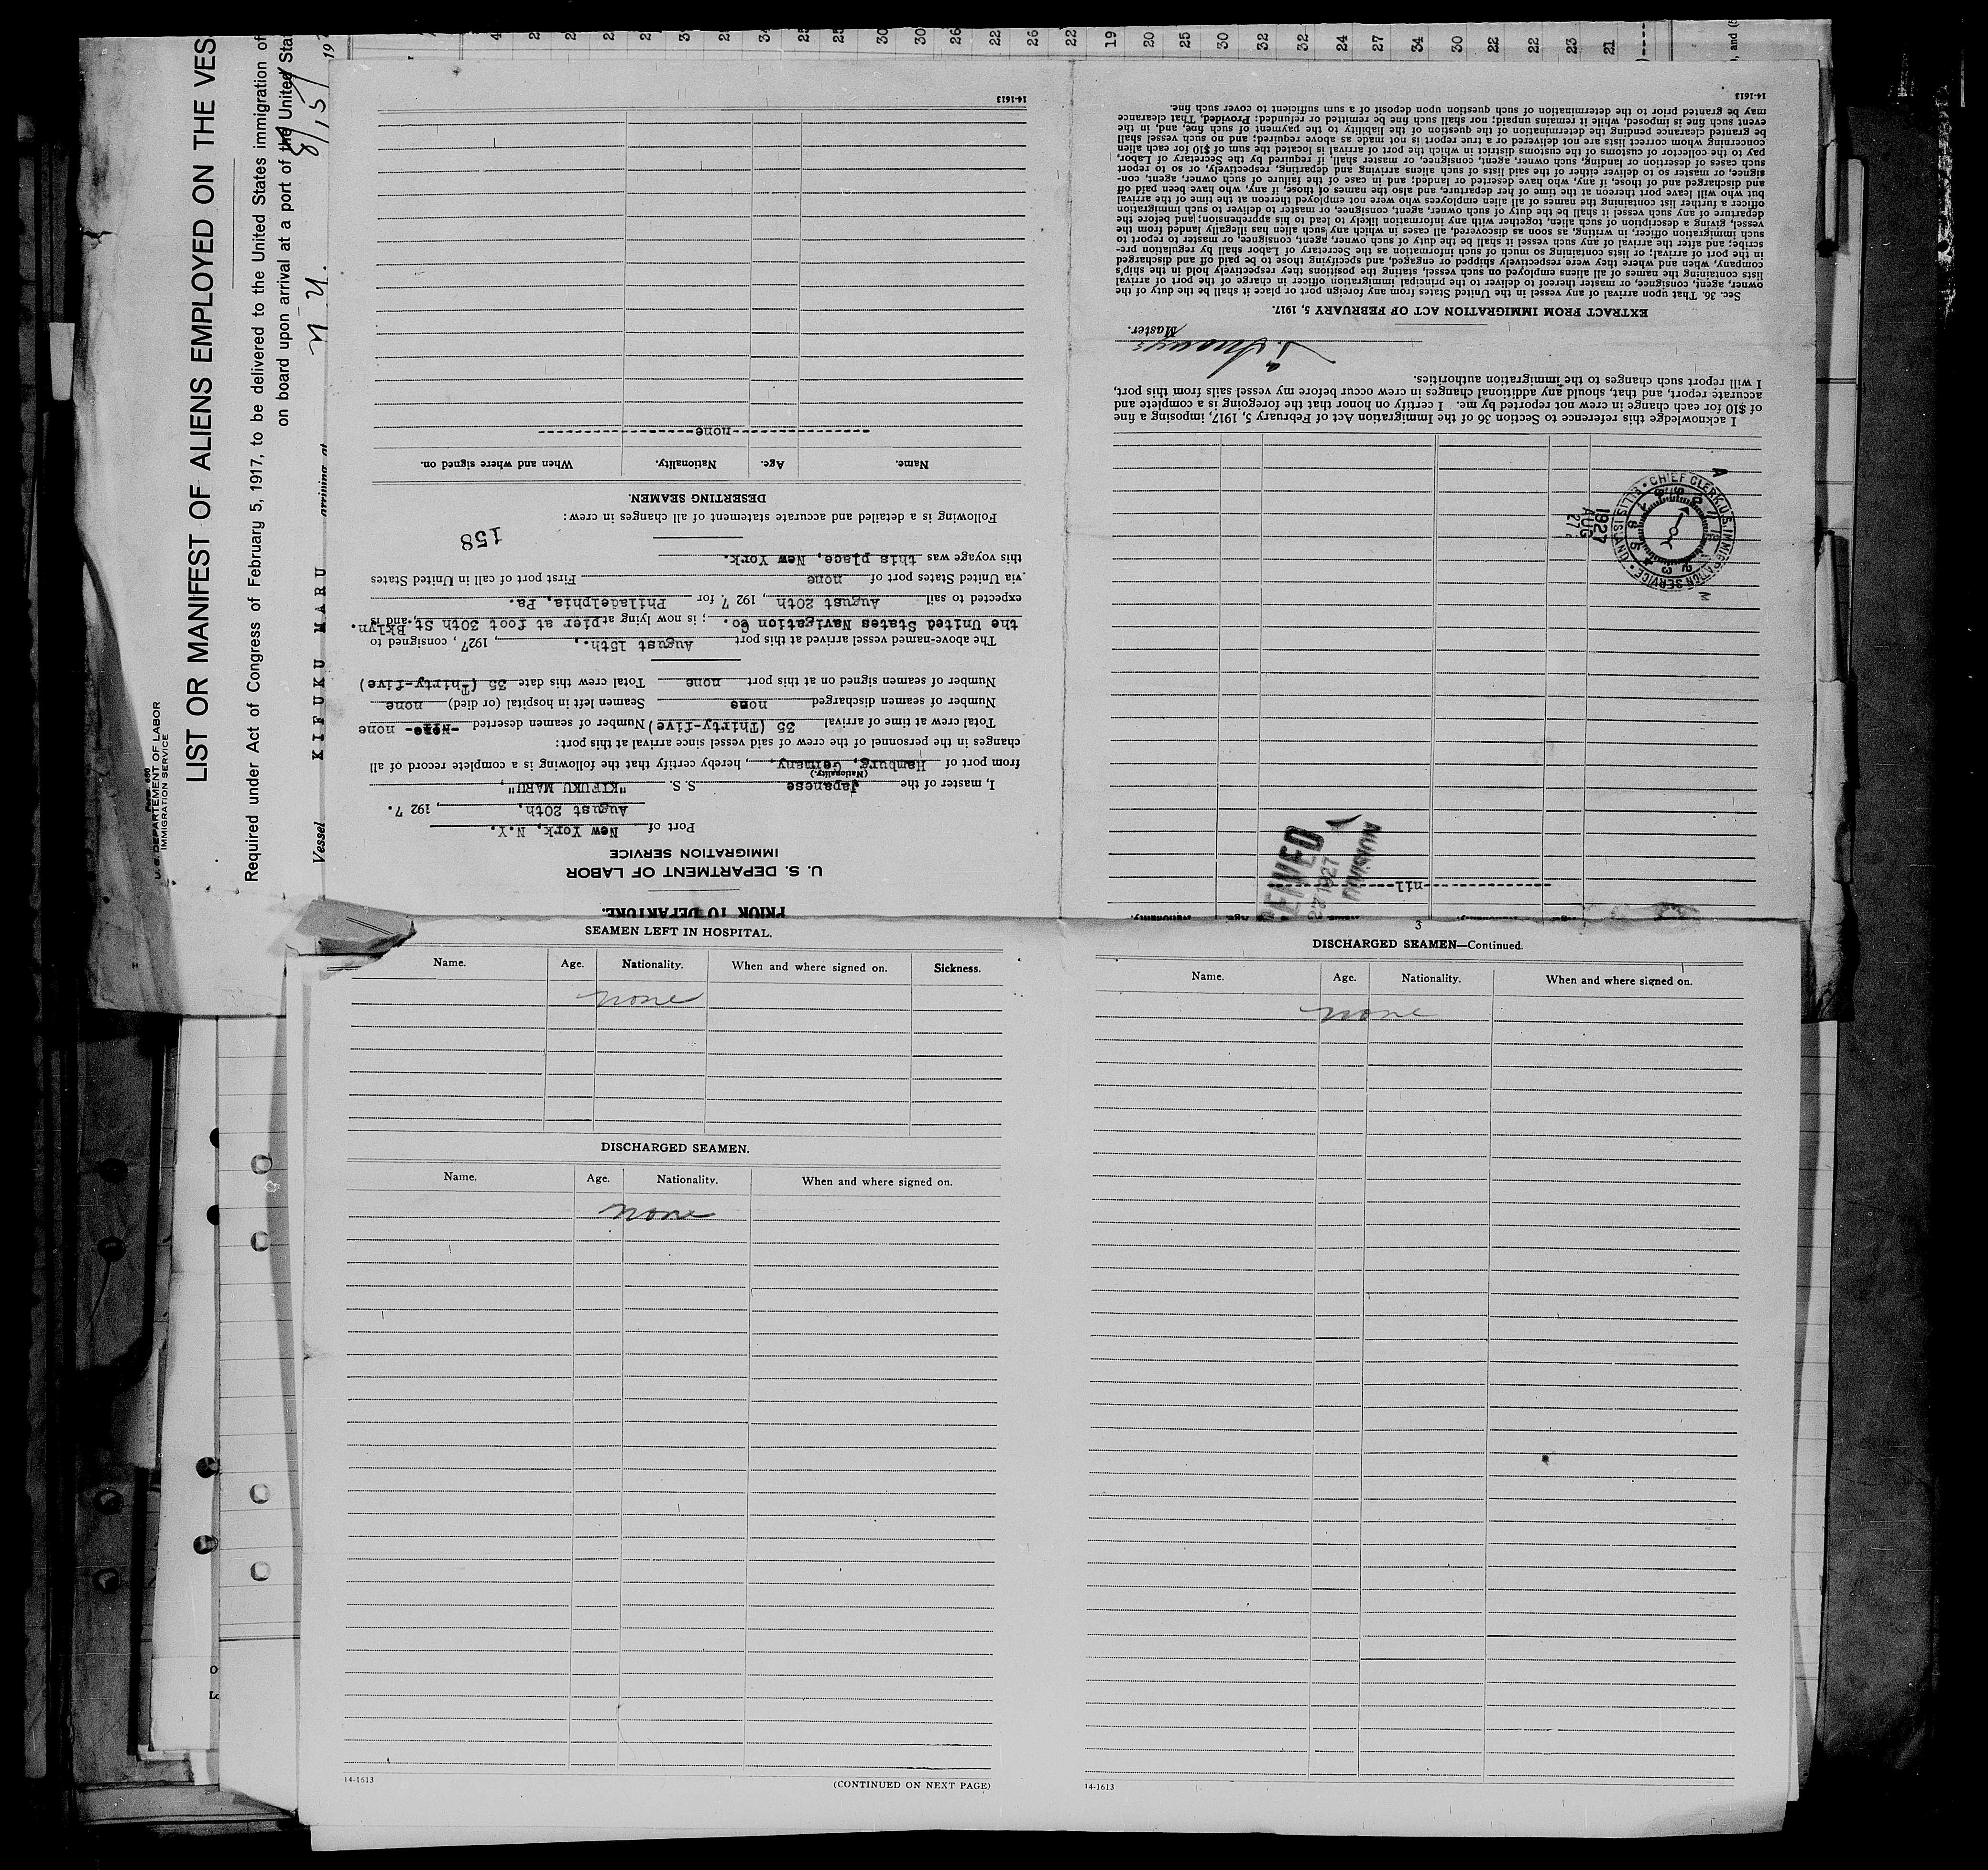 U. S. DEPARTMENT OF LABOR
IMMIGRATION SERVICE
LIST OR MANIFEST OF ALIENS EMPLOYED ON THE VES
Required under Act of Congress of February 5, 1917, to be delivered to the United States immigration of
on board upon arrival at a port of the United Stat
Vessel KIFUKU MARU arriving at N.Y. 8/15/ 192
4 2 2 2 2 3 2 34 25 25 30 30 26 22 26 22 19 20 25 30 32 32 24 27 34 30 22 22 23 21
, and (5
PRIOR TO DEPARTURE.
U. S. DEPARTMENT OF LABOR
IMMIGRATION SERVICE
Port of New York, N.Y.
August 20th, , 192 7.
I, master of the Japanese S. S. "KIFUKU MARU",
(Nationality.)
from port of Hamburg, Gemany, , hereby certify that the following is a complete record of all
changes in the personnel of the crew of said vessel since arrival at this port:
Total crew at time of arrival 35 (Thirty-five) Number of seamen deserted none
Number of seamen discharged none Seamen left in hospital (or died) none
Number of seamen signed on at this port none Total crew this date 35 (Thirty-five)
The above-named vessel arrived at this port August 15th., , 1927 , consigned to
the United States Navigation Co. ; is now lying at pier at foot 30th St. Bklyn. , and is
expected to sail August 20th , 192 7. for Philadelphia, Pa.
via United States port of none First port of call in United States
this voyage was this place, New York.
158
Following is a detailed and accurate statement of all changes in crew:
DESERTING SEAMEN.
Name. Age. Nationality. When and where signed on.
-none-
14-1613
Name. Age. Nationality.
-nil-
27 1927
DIVISION
CHIEF CLERK, U.S. IMMIGRATION SERVICE
ELLIS ISLAND
1927
AUG
27
A M
I acknowledge this reference to Section 36 of the Immigration Act of February 5, 1917, imposing a fine
of $10 for each change in crew not reported by me. I certify on honor that the foregoing is a complete and
accurate report, and that, should any additional changes in crew occur before my vessel sails from this port,
I will report such changes to the immigration authorities.
Master.
EXTRACT FROM IMMIGRATION ACT OF FEBRUARY 5, 1917.
Sec. 36. That upon arrival of any vessel in the United States from any foreign port or place it shall be the duty of the
owner, agent, consignee, or master thereof to deliver to the principal immigration officer in charge of the port of arrival
lists containing the names of all aliens employed on such vessel, stating the positions they respectively hold in the ship's
company, when and where they were respectively shipped or engaged, and specifying those to be paid off and discharged
in the port of arrival; or lists containing so much of such information as the Secretary of Labor shall by regulation pre-
scribe; and after the arrival of any such vessel it shall be the duty of such owner, agent, consignee, or master to report to
such immigration officer, in writing, as soon as discovered, all cases in which any such alien has illegally landed from the
vessel, giving a description of such alien, together with any information likely to lead to his apprehension; and before the
departure of any such vessel it shall be the duty of such owner, agent, consignee, or master to deliver to such immigration
officer a further list containing the names of all alien employees who were not employed thereon at the time of the arrival
but who will leave port thereon at the time of her departure, and also the names of those, if any, who have been paid off
and discharged and of those, if any, who have deserted or landed; and in case of the failure of such owner, agent, con-
signee, or master so to deliver either of the said lists of such aliens arriving and departing, respectively, or so to report
such cases of desertion or landing, such owner, agent, consignee, or master shall, if required by the Secretary of Labor,
pay to the collector of customs of the customs district in which the port of arrival is located the sum of $10 for each alien
concerning whom correct lists are not delivered or a true report is not made as above required; and no such vessel shall
be granted clearance pending the determination of the question of the liability to the payment of such fine, and, in the
event such fine is imposed, while it remains unpaid; nor shall such fine be remitted or refunded: Provided, That clearance
may be granted prior to the determination of such question upon deposit of a sum sufficient to cover such fine.
14-1613
SEAMEN LEFT IN HOSPITAL.
Name. Age. Nationality. When and where signed on. Sickness.
none
DISCHARGED SEAMEN.
Name. Age. Nationality. When and where signed on.
none
14-1613
(CONTINUED ON NEXT PAGE)
3
DISCHARGED SEAMEN—Continued.
Name. Age. Nationality. When and where signed on.
none
14-1613